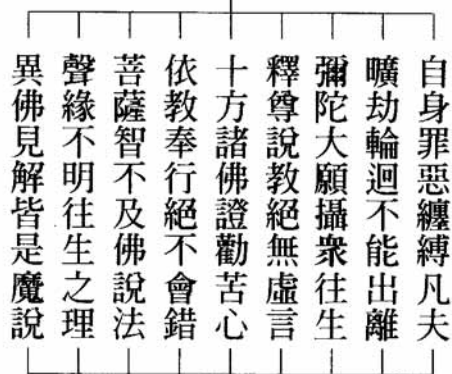 自身罪惡纏縛凡夫
曠劫輪迴不能出離
彌陀大願攝衆往生
釋尊說教絕無虛言
十方諸佛證勸苦心
依教奉行絕不會錯
菩薩智不及佛說法
聲緣不明往生之理
異佛見解皆是魔說